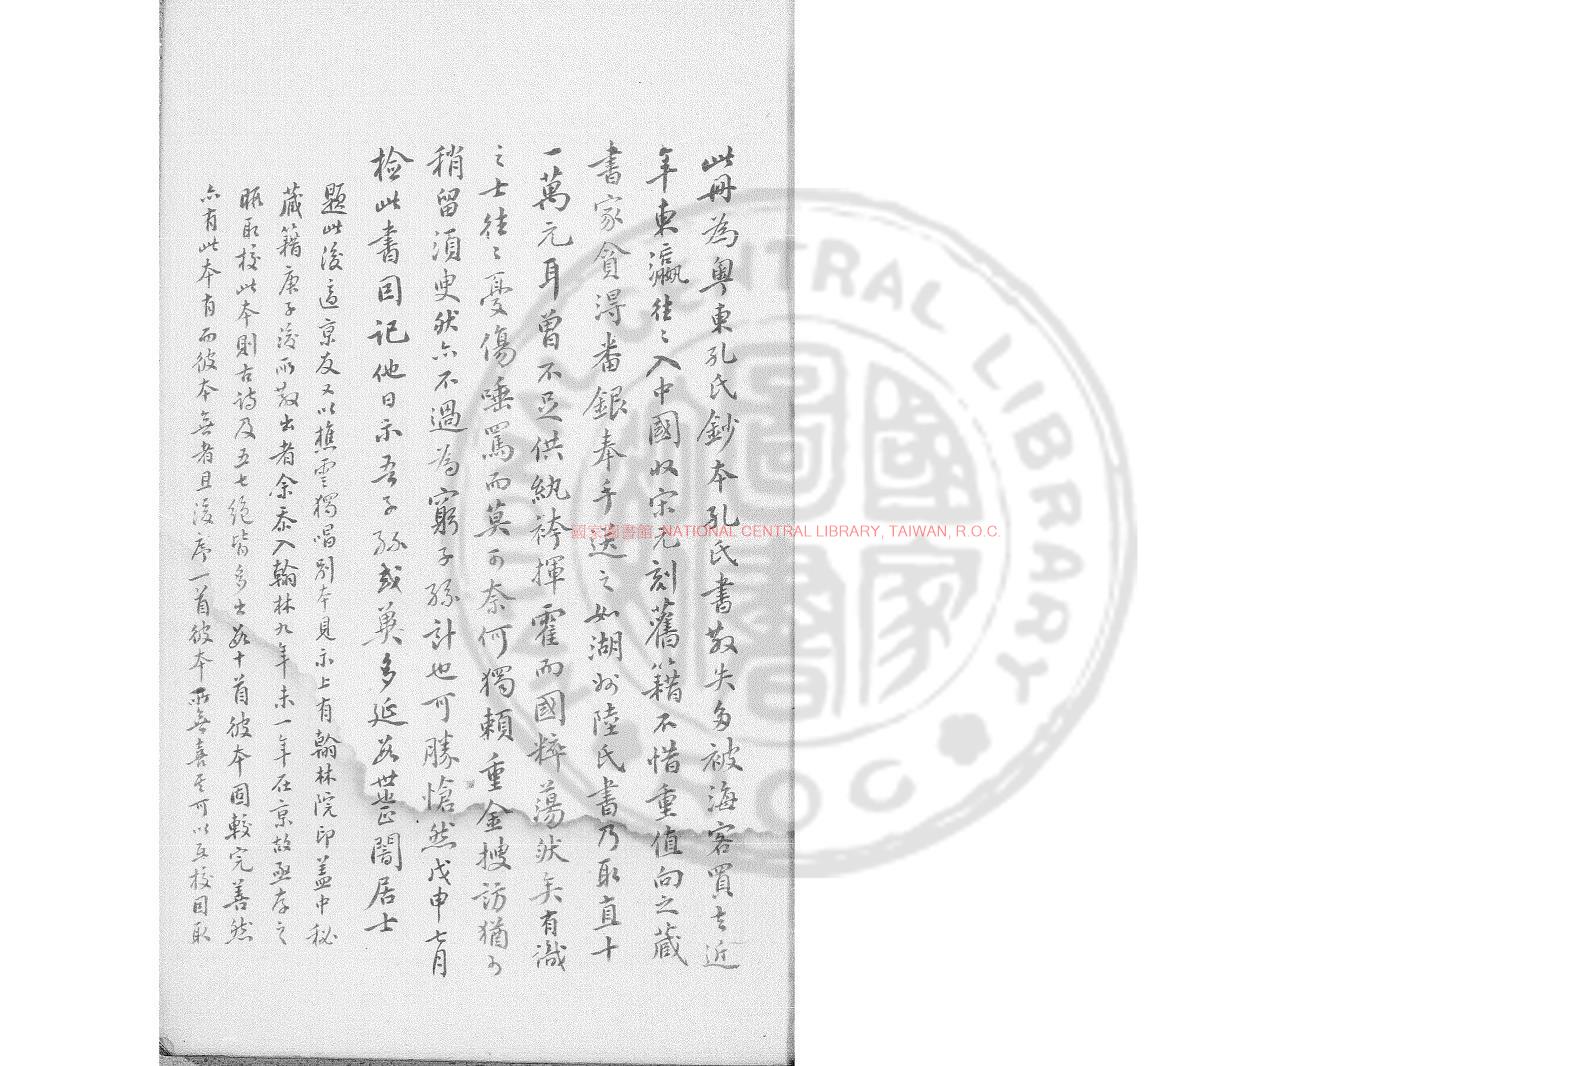 此冊為粵東孔氏鈔本孔氏書散失多被海客買去近
年東瀛往〻入中國收宋元刻舊籍不惜重值向之藏
書家貪得番銀奉手送之如湖州陸氏書乃取直十
一萬元耳曾不足供紈袴揮霍而國粹蕩然矣有識
之士往〻憂傷唾罵而莫可奈何獨賴重金搜訪猶可
稍留須臾然亦不過為窮子孫計也可勝愴然戊申七月
檢此書因記他日示吾子孫或異多延數世耳闇居士
題此後適京友又以樵雲獨唱別本見示上有翰林院印蓋中秘
藏籍庚子後所散出者余忝入翰林九年未一年在京故亟存之
眂取校此本則古詩及五七絕皆多出數十首彼本固較完善然
亦有此本有而彼本無者且後序一首彼本所無喜其可以互校因取
國家圖書館 NATIONAL CENTRAL LIBRARY, TAIWAN, R.O.C.
NATIONAL CENTRAL LIBRARY
ROC
國家圖書館